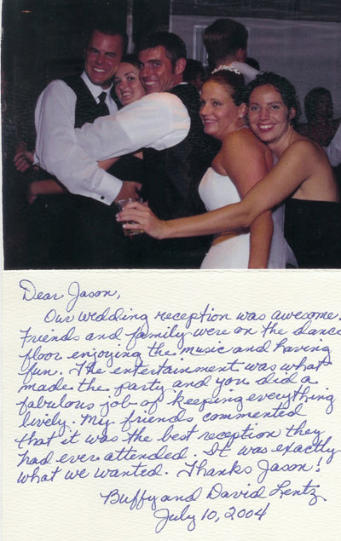 Dear Jason,
Our wedding reception was awesome.
Friends and family were on the dance
floor enjoying the music and having
fun. The entertainment was what
made the party and you did a
fabulous job of keeping everything
lively. My friends commented
that it was the best reception they
had ever attended. It was exactly
what we wanted. Thanks Jason!
Buffy and David Lentz
July 10, 2004